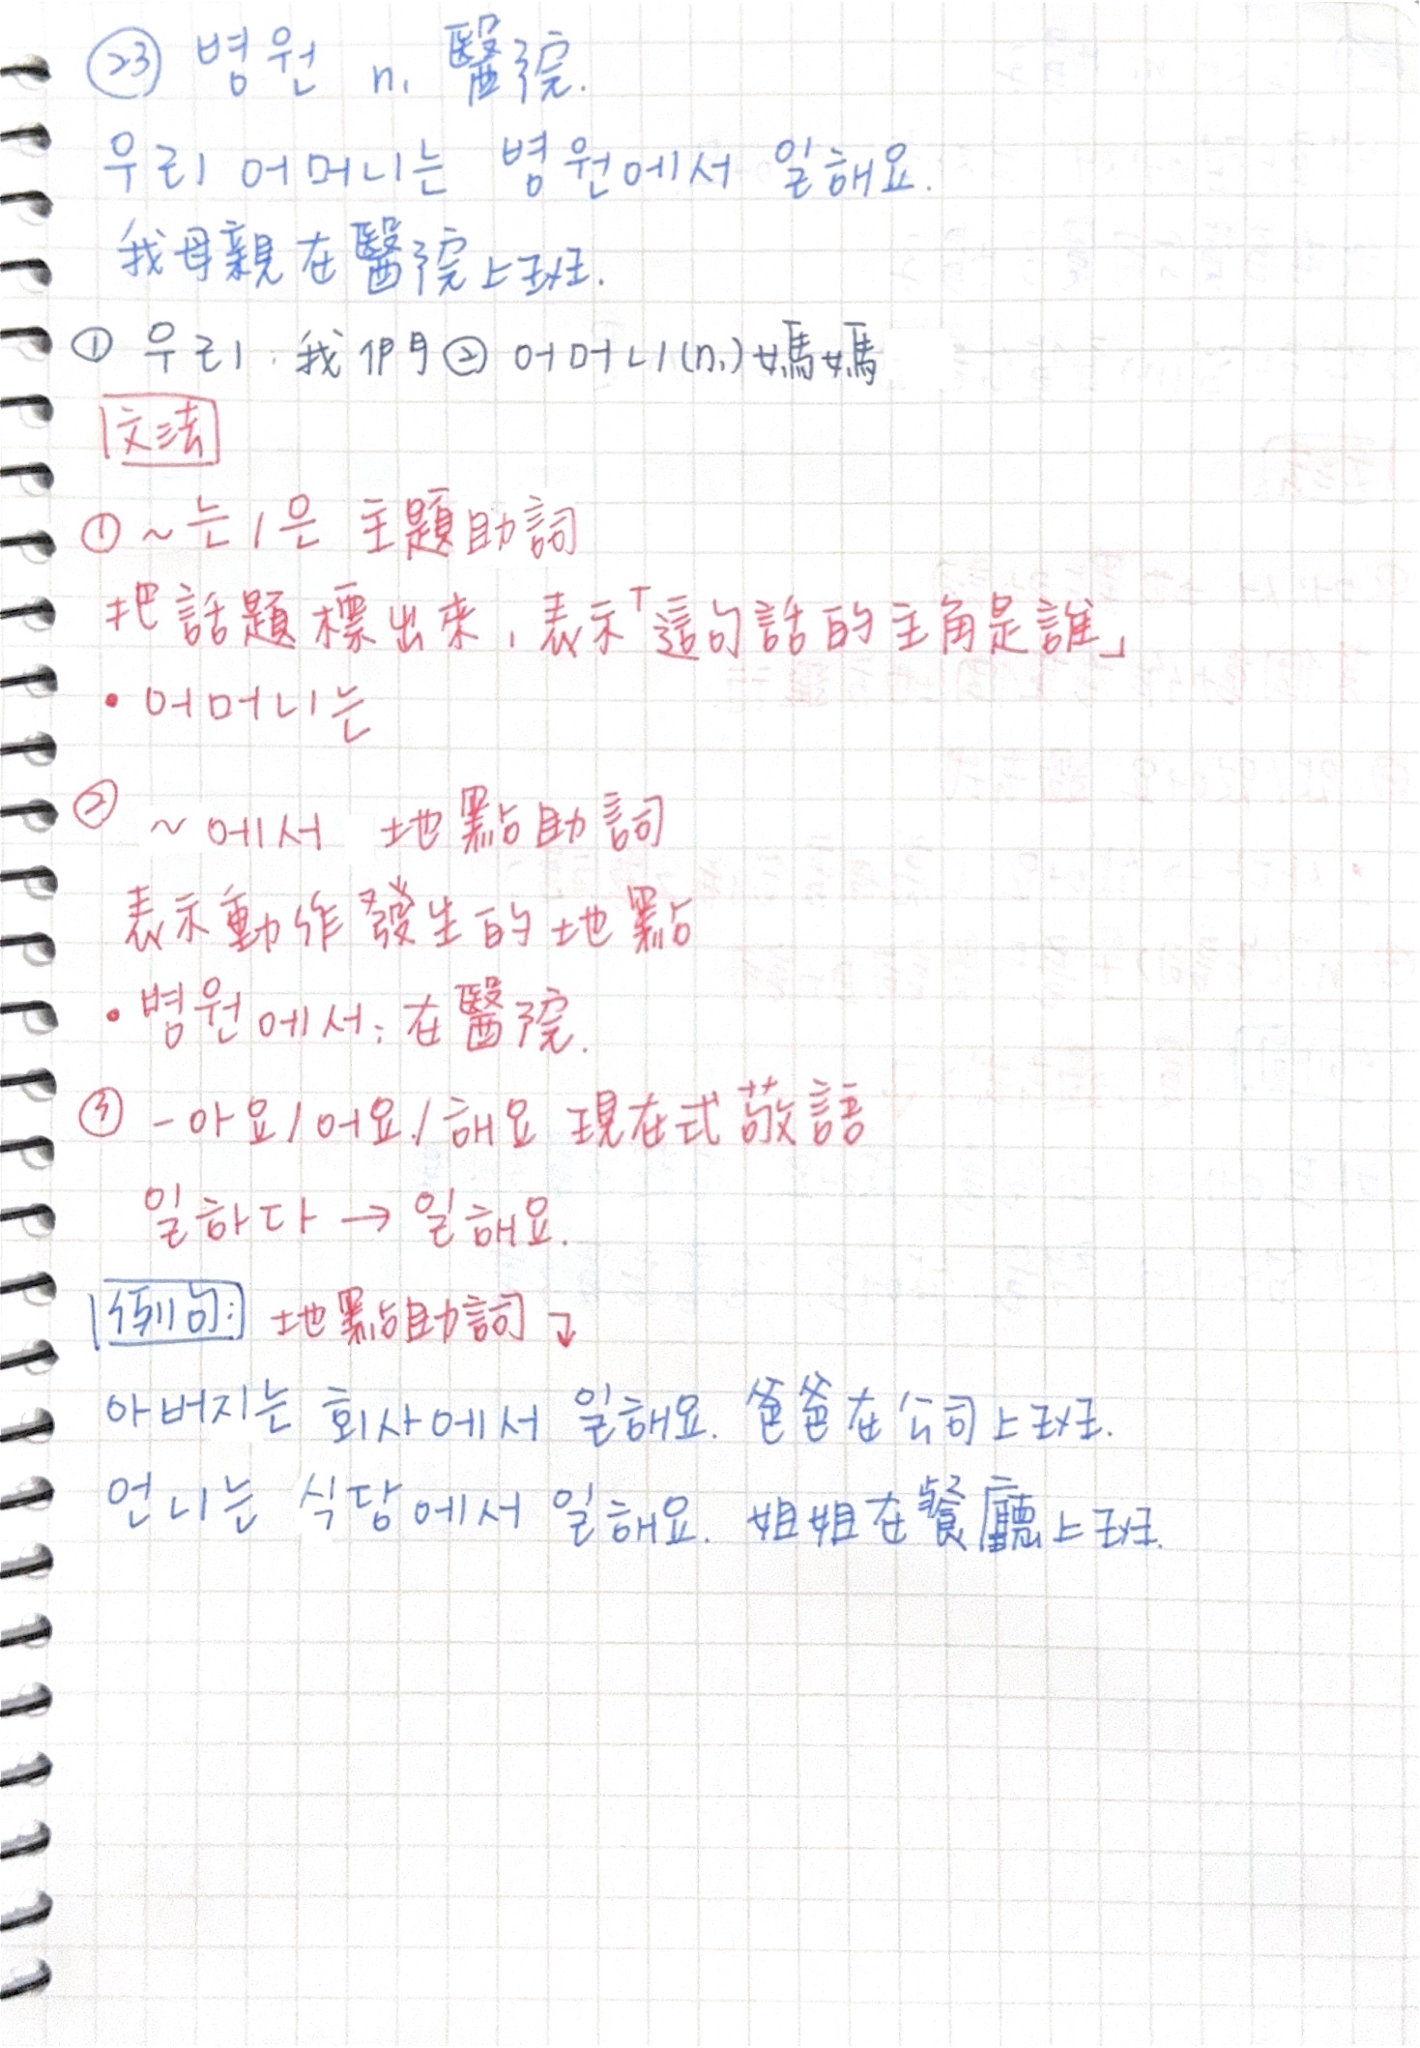 ㉓ 병원 n. 醫院.
우리 어머니는 병원에서 일해요.
我母親在醫院上班.
① 우리: 我們 ② 어머니(n.) 媽媽
文法
① ~는/은 主題助詞
把話題標出來,表示「這句話的主角是誰」
• 어머니는
② ~에서 地點助詞
表示動作發生的地點
• 병원에서: 在醫院.
③ -아요/어요/해요 現在式敬語
일하다 → 일해요.
例句: 地點助詞↴
아버지는 회사에서 일해요. 爸爸在公司上班.
언니는 식당에서 일해요. 姐姐在餐廳上班.